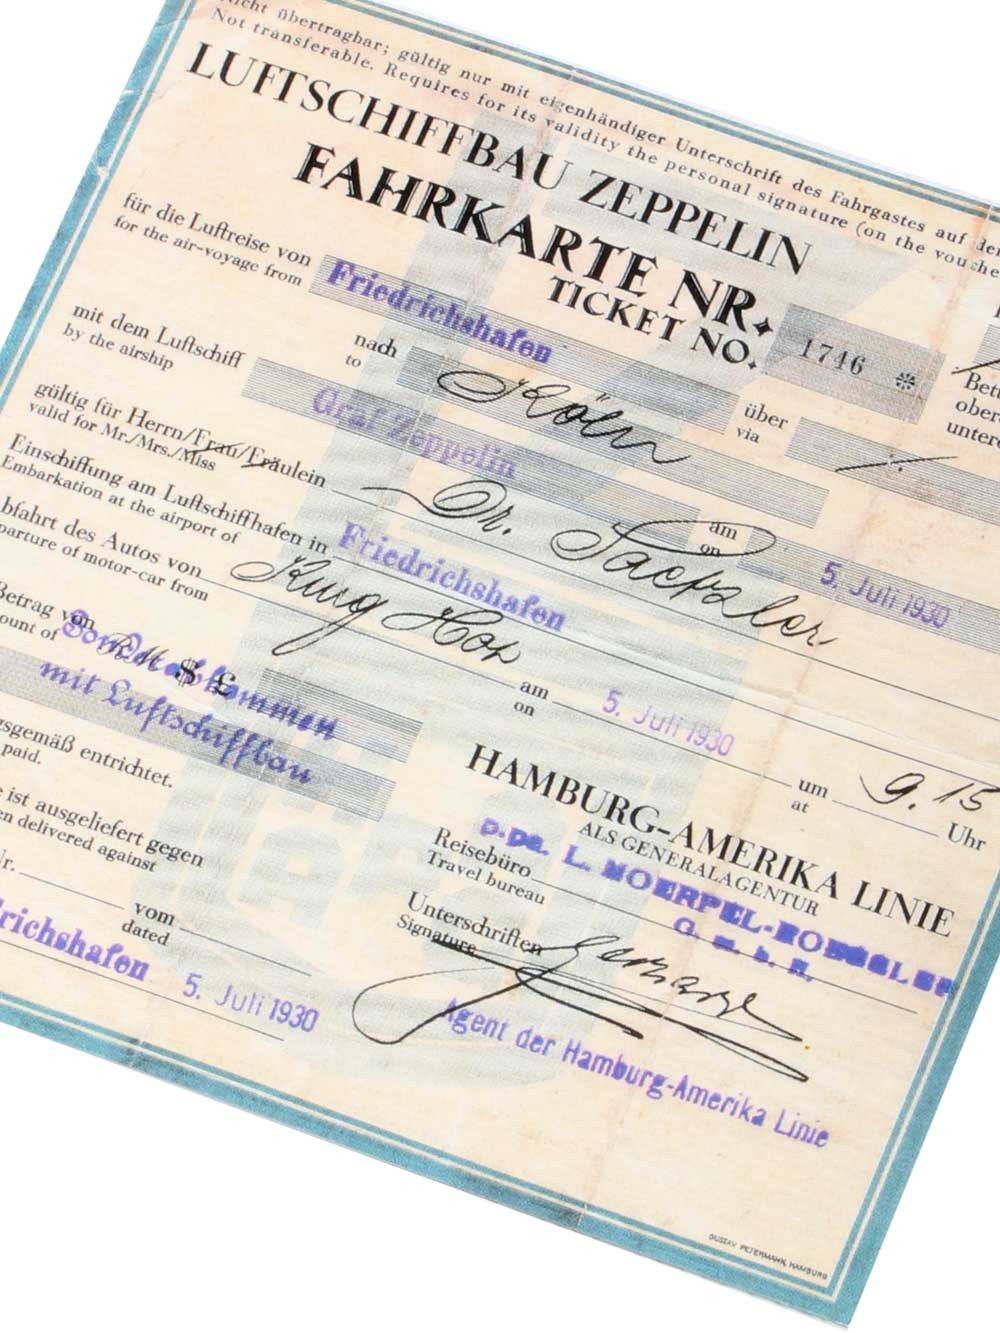 Nicht übertragbar; gültig nur mit eigenhändiger Unterschrift des Fahrgastes auf
Not transferable. Requires for its validity the personal signature (on the
LUFTSCHIFFBAU ZEPPELIN
FAHRKARTE NR.
TICKET NO. 1746 *
für die Luftreise von Friedrichshafen nach Köln über ./.
for the air-voyage from to via
mit dem Luftschiff Graf Zeppelin am 5. Juli 1930
by the airship on
gültig für Herrn/Frau/Fräulein Dr.
valid for Mr./Mrs./Miss
Einschiffung am Luftschiffhafen in Friedrichshafen
Embarkation at the airport of
bfahrt des Autos von Hof am 5. Juli 1930 um 9.15 Uhr
parture of motor-car from on at
Betrag von RM $ £
ount of
mit Luftschiffbau
gsgemäß entrichtet.
paid.
e ist ausgeliefert gegen
en delivered against
Nr. vom
dated
drichshafen 5. Juli 1930
HAMBURG-AMERIKA LINIE
ALS GENERALAGENTUR
Reisebüro
Travel bureau
G.m.b.H.
Unterschriften
Signature
Agent der Hamburg-Amerika Linie
Bet
ober
unter
GUSTAV PETERMANN, HAMBURG